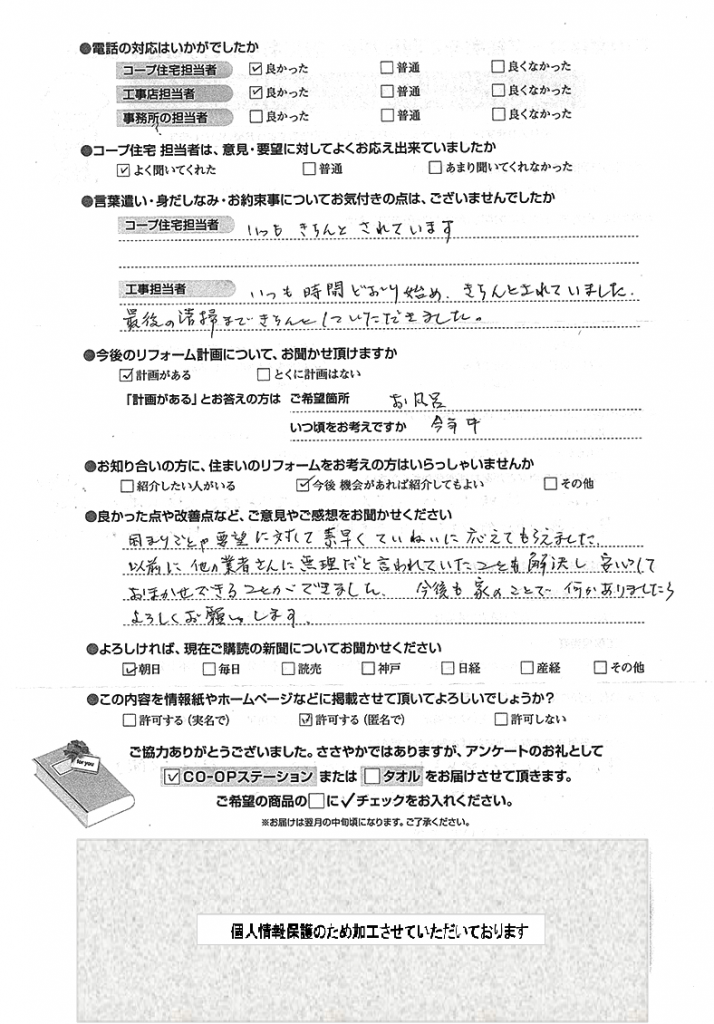 ●電話の対応はいかがでしたか
コープ住宅担当者 ☑良かった □普通 □良くなかった
工事店担当者 ☑良かった □普通 □良くなかった
事務所の担当者 □良かった □普通 □良くなかった
●コープ住宅 担当者は、意見・要望に対してよくお応え出来ていましたか
☑よく聞いてくれた □普通 □あまり聞いてくれなかった
●言葉遣い・身だしなみ・お約束事についてお気付きの点は、ございませんでしたか
コープ住宅担当者 いつも きちんと されています
工事担当者 いつも 時間どおり始め、きちんとされていました。
最後の清掃まできちんとしていただきました。
●今後のリフォーム計画について、お聞かせ頂けますか
☑計画がある □とくに計画はない
「計画がある」とお答えの方は ご希望箇所 お風呂
いつ頃をお考えですか 今年中
●お知り合いの方に、住まいのリフォームをお考えの方はいらっしゃいませんか
□紹介したい人がいる ☑今後 機会があれば紹介してもよい □その他
●良かった点や改善点など、ご意見やご感想をお聞かせください
困りごとや要望に対して素早くていねいに応えてもらえました。
以前に他の業者さんに無理だと言われていたことも解決し安心して
おまかせできることができました。 今後も家のことで何かありましたら
よろしくお願いします。
●よろしければ、現在ご購読の新聞についてお聞かせください
☑朝日 □毎日 □読売 □神戸 □日経 □産経 □その他
●この内容を情報紙やホームページなどに掲載させて頂いてよろしいでしょうか?
□許可する(実名で) ☑許可する(匿名で) □許可しない
for you
ご協力ありがとうございました。ささやかではありますが、アンケートのお礼として
☑CO-OPステーション または □タオル をお届けさせて頂きます。
ご希望の商品の□に✓チェックをお入れください。
※お届けは翌月の中旬頃になります。ご了承ください。
個人情報保護のため加工させていただいております